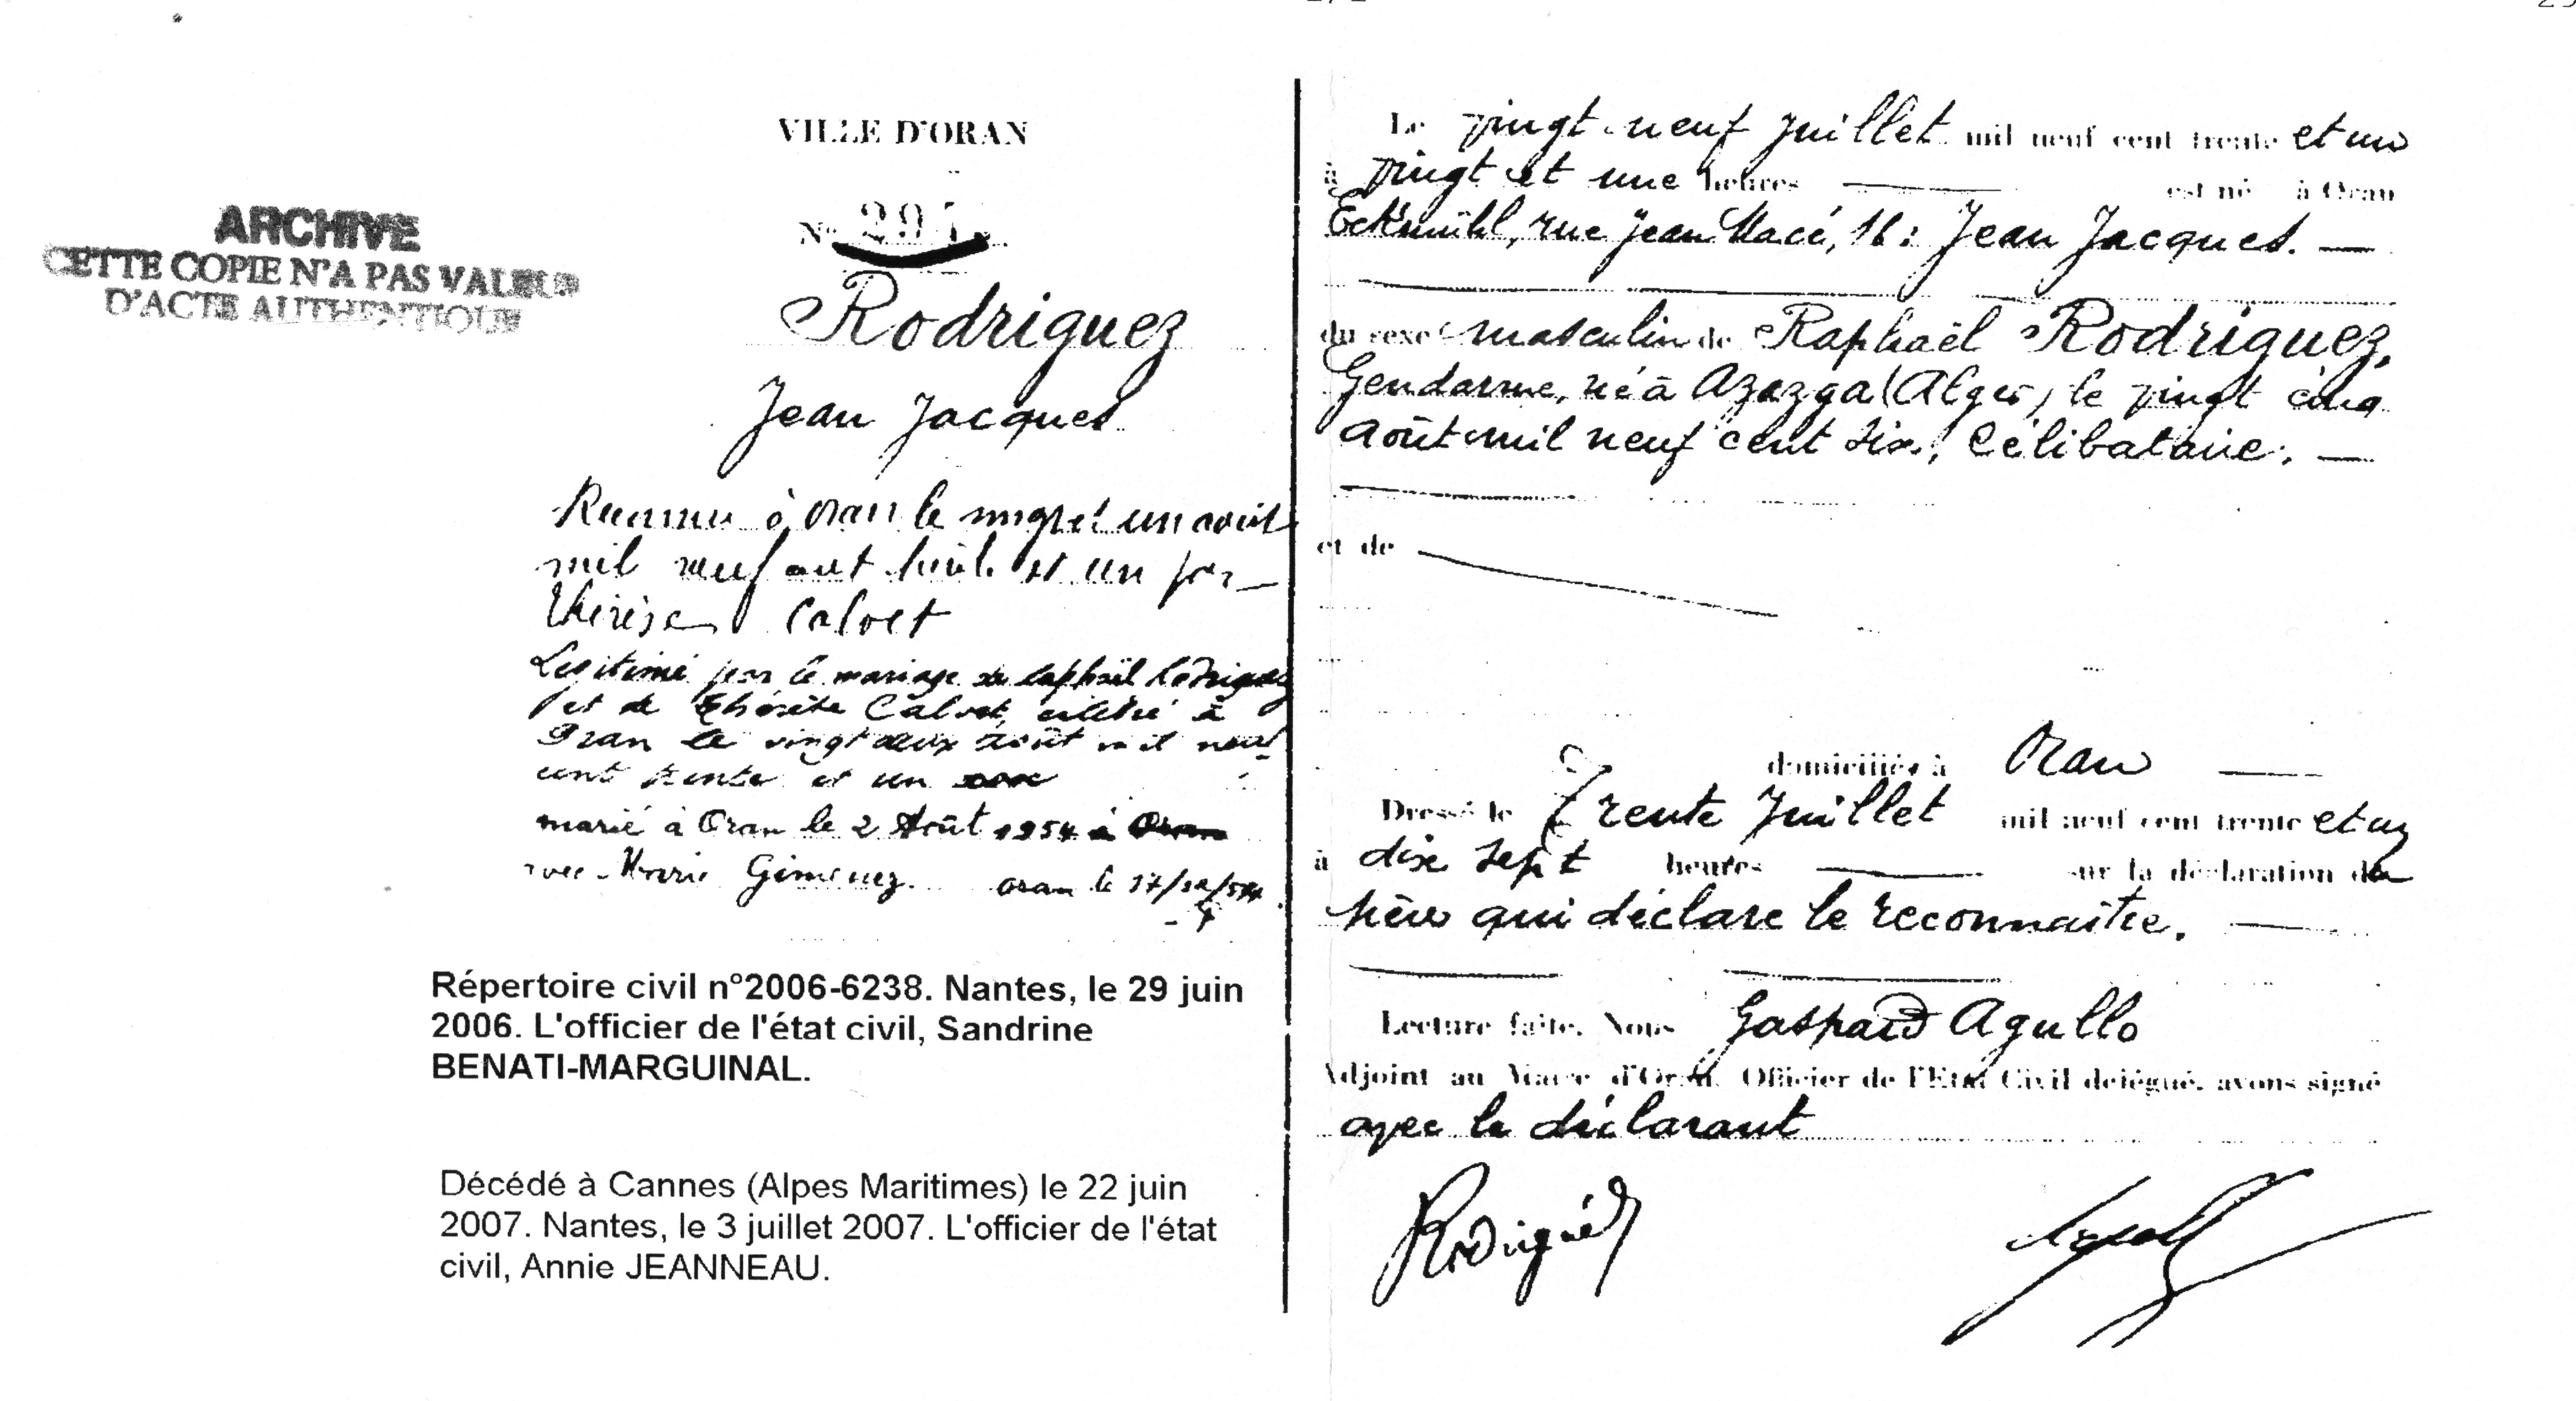 ARCHIVE
CETTE COPIE N'A PAS VALEUR
D'ACTE AUTHENTIQUE
VILLE D'ORAN
N°
Rodriguez
Jean Jacques
Reconnu à Oran le vingt et un août
mil neuf cent trente et un par
Thérèse Calvet
Légitimé par le mariage de Raphaël Rodriguez
et de Thérèse Calvet, célébré à
Oran le vingt deux août mil neuf
cent trente et un
marié à Oran le 2 Août 1954
avec Marie Gimenez. Oran le
Répertoire civil n°2006-6238. Nantes, le 29 juin
2006. L'officier de l'état civil, Sandrine
BENATI-MARGUINAL.
Décédé à Cannes (Alpes Maritimes) le 22 juin
2007. Nantes, le 3 juillet 2007. L'officier de l'état
civil, Annie JEANNEAU.
Le vingt neuf Juillet mil neuf cent trente et un
à vingt et une heures est né à Oran
Eckmühl, rue Jean Macé, 16 : Jean Jacques.
du sexe masculin de Raphaël Rodriguez,
Gendarme, né à Azazga (Alger) le vingt cinq
Août mil neuf cent six, Célibataire,
et de
domiciliés à Oran
Dressé le Trente Juillet mil neuf cent trente et un
à dix sept heures sur la déclaration du
père qui déclare le reconnaître.
Lecture faite, Nous Gaspard Agullo
Adjoint au Maire d'Oran, Officier de l'Etat Civil délégué, avons signé
avec le déclarant
Rodriguez